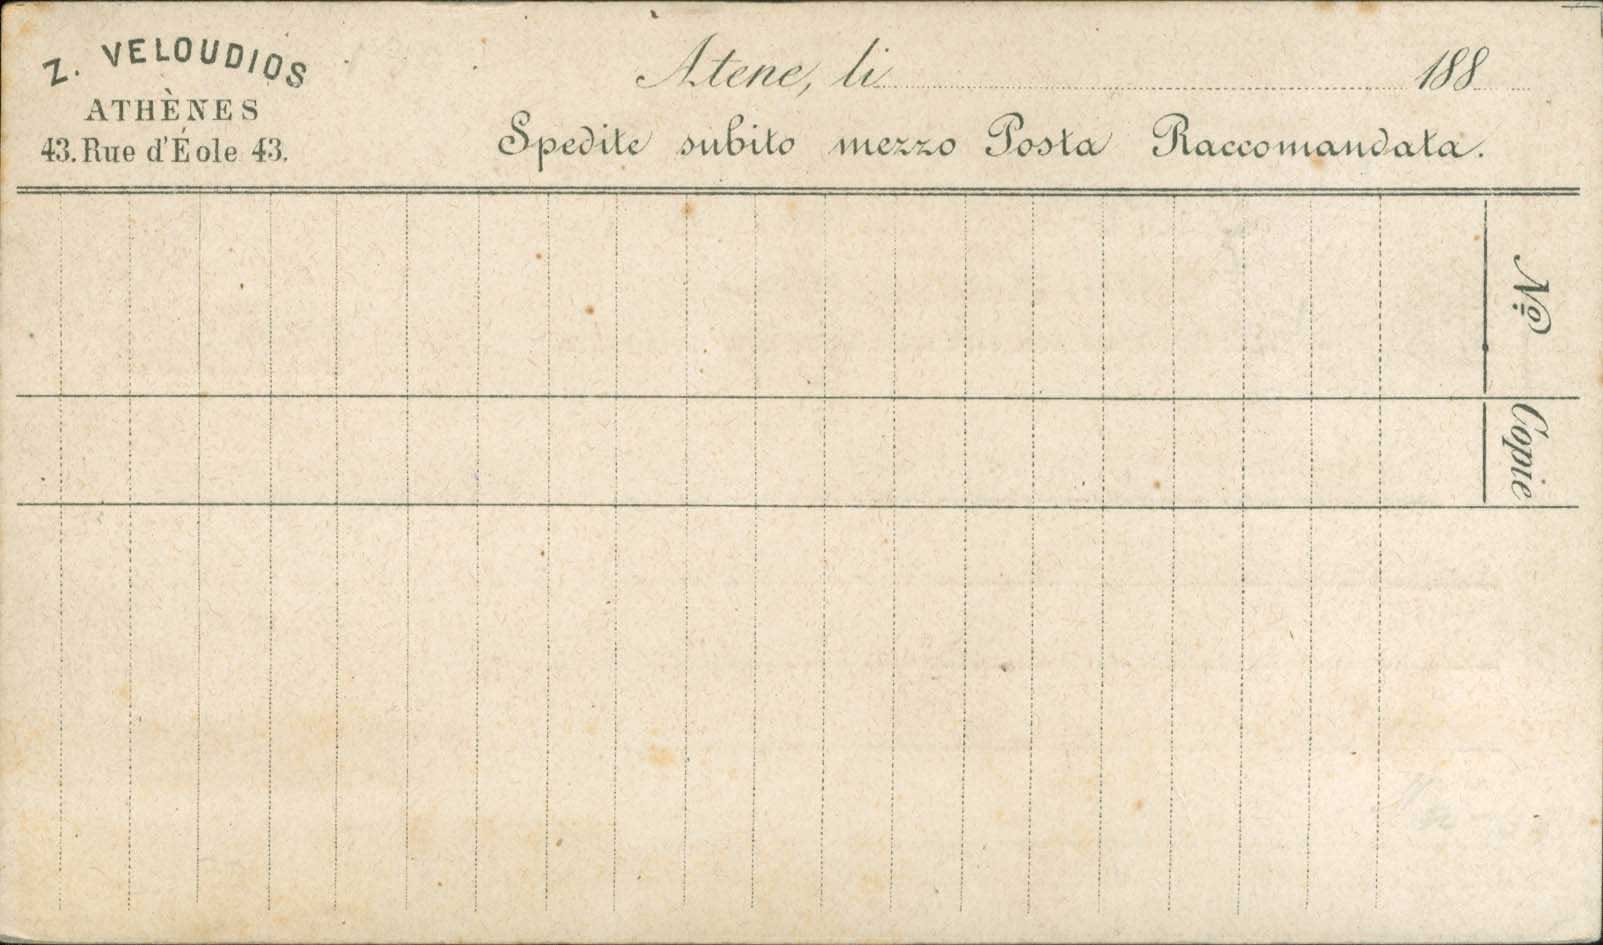 Z. VELOUDIOS
ATHÈNES
43. Rue d'Éole 43.
Atene, li 188
Spedite subito mezzo Posta Raccomandata.
Nº
Copie